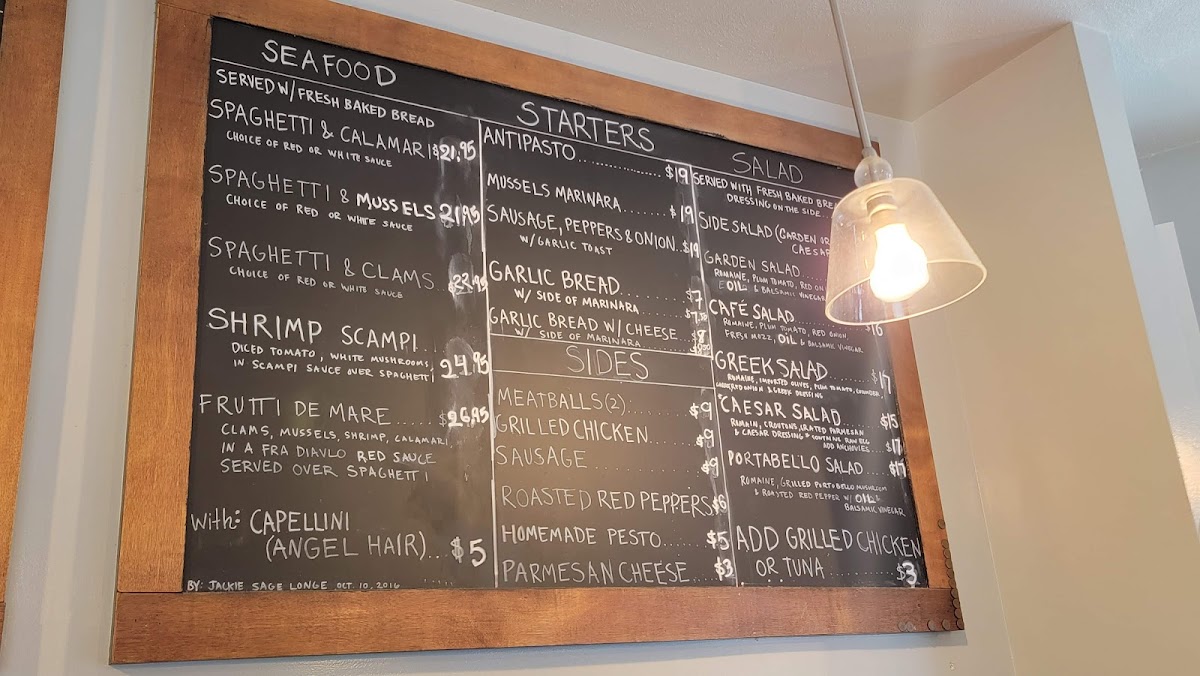 SEAFOOD
SERVED W/ FRESH BAKED BREAD
SPAGHETTI & CALAMARI $21.95
CHOICE OF RED OR WHITE SAUCE
SPAGHETTI & MUSSELS 21.95
CHOICE OF RED OR WHITE SAUCE
SPAGHETTI & CLAMS.....
CHOICE OF RED OR WHITE SAUCE
SHRIMP SCAMPI..
DICED TOMATO, WHITE MUSHROOMS,
IN SCAMPI SAUCE OVER SPAGHETTI 24.95
FRUTTI DE MARE.....$26.95
CLAMS, MUSSELS, SHRIMP, CALAMARI
IN A FRA DIAVLO RED SAUCE
SERVED OVER SPAGHETTI
With: CAPELLINI
(ANGEL HAIR)...$5
BY: JACKIE SAGE LONGE OCT. 10, 2016
STARTERS
ANTIPASTO...............$19
MUSSELS MARINARA.......$19
SAUSAGE, PEPPERS & ONION..$19
W/ GARLIC TOAST
GARLIC BREAD..........$7
W/ SIDE OF MARINARA
GARLIC BREAD W/ CHEESE....$8
W/ SIDE OF MARINARA
SIDES
MEATBALLS (2).......$9
GRILLED CHICKEN.....$9
SAUSAGE............$9
ROASTED RED PEPPERS $6
HOMEMADE PESTO......$5
PARMESAN CHEESE....$3
SALAD
SERVED WITH FRESH BAKED
DRESSING ON THE SIDE...
SIDE SALAD (GARDEN OR
CAESAR
GARDEN SALAD
ROMAINE, PLUM TOMATO, RED
OIL & BALSAMIC VINEGAR
CAFÉ SALAD $16
ROMAINE, PLUM TOMATO, RED ONION,
FRESH MOZZ, OIL & BALSAMIC VINEGAR
GREEK SALAD.......$17
ROMAINE, IMPORTED OLIVES, PLUM TOMATO, CUCUMBER
& GREEK DRESSING
CAESAR SALAD......$15
ROMAIN, CROUTONS, GRATED PARMESAN
& CAESAR DRESSING * CONTAINS RAW EGG
ADD ANCHOVIES...$17
PORTABELLO SALAD...$17
ROMAINE, GRILLED PORTOBELLO MUSHROOM
& ROASTED RED PEPPER W/ OIL &
BALSAMIC VINEGAR
ADD GRILLED CHICKEN
OR TUNA...........$3